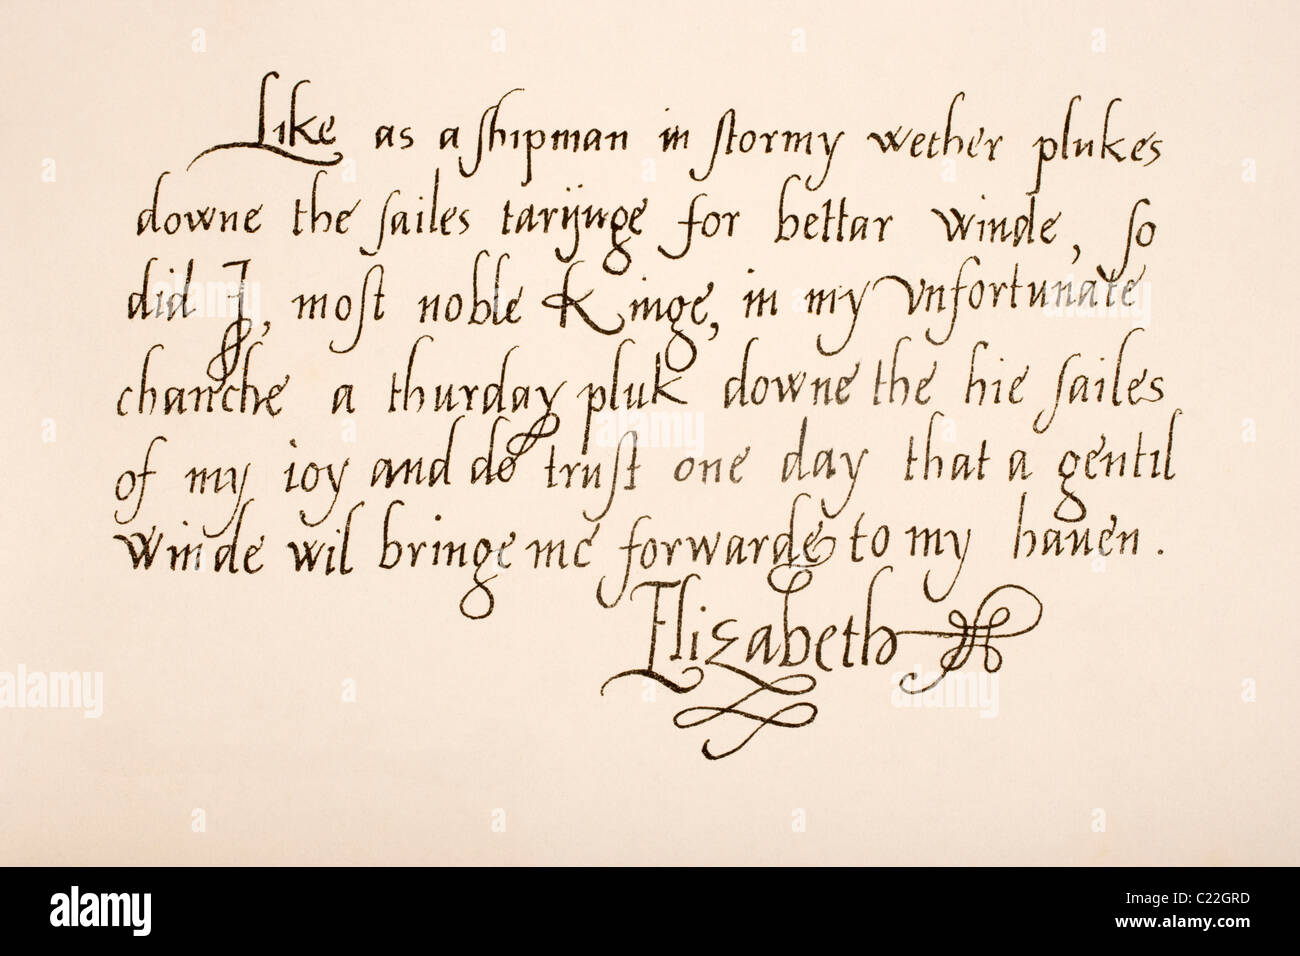 Like as a ſhipman in ſtormy wether plukes
downe the ſailes tarijnge for bettar winde, ſo
did I, moſt noble Kinge, in my vnfortunate
chanche a thurday pluk downe the hie ſailes
of my ioy and do truſt one day that a gentil
winde wil bringe me forwarde to my hauen.
Elizabeth
alamy
Image ID: C22GRD
www.alamy.com